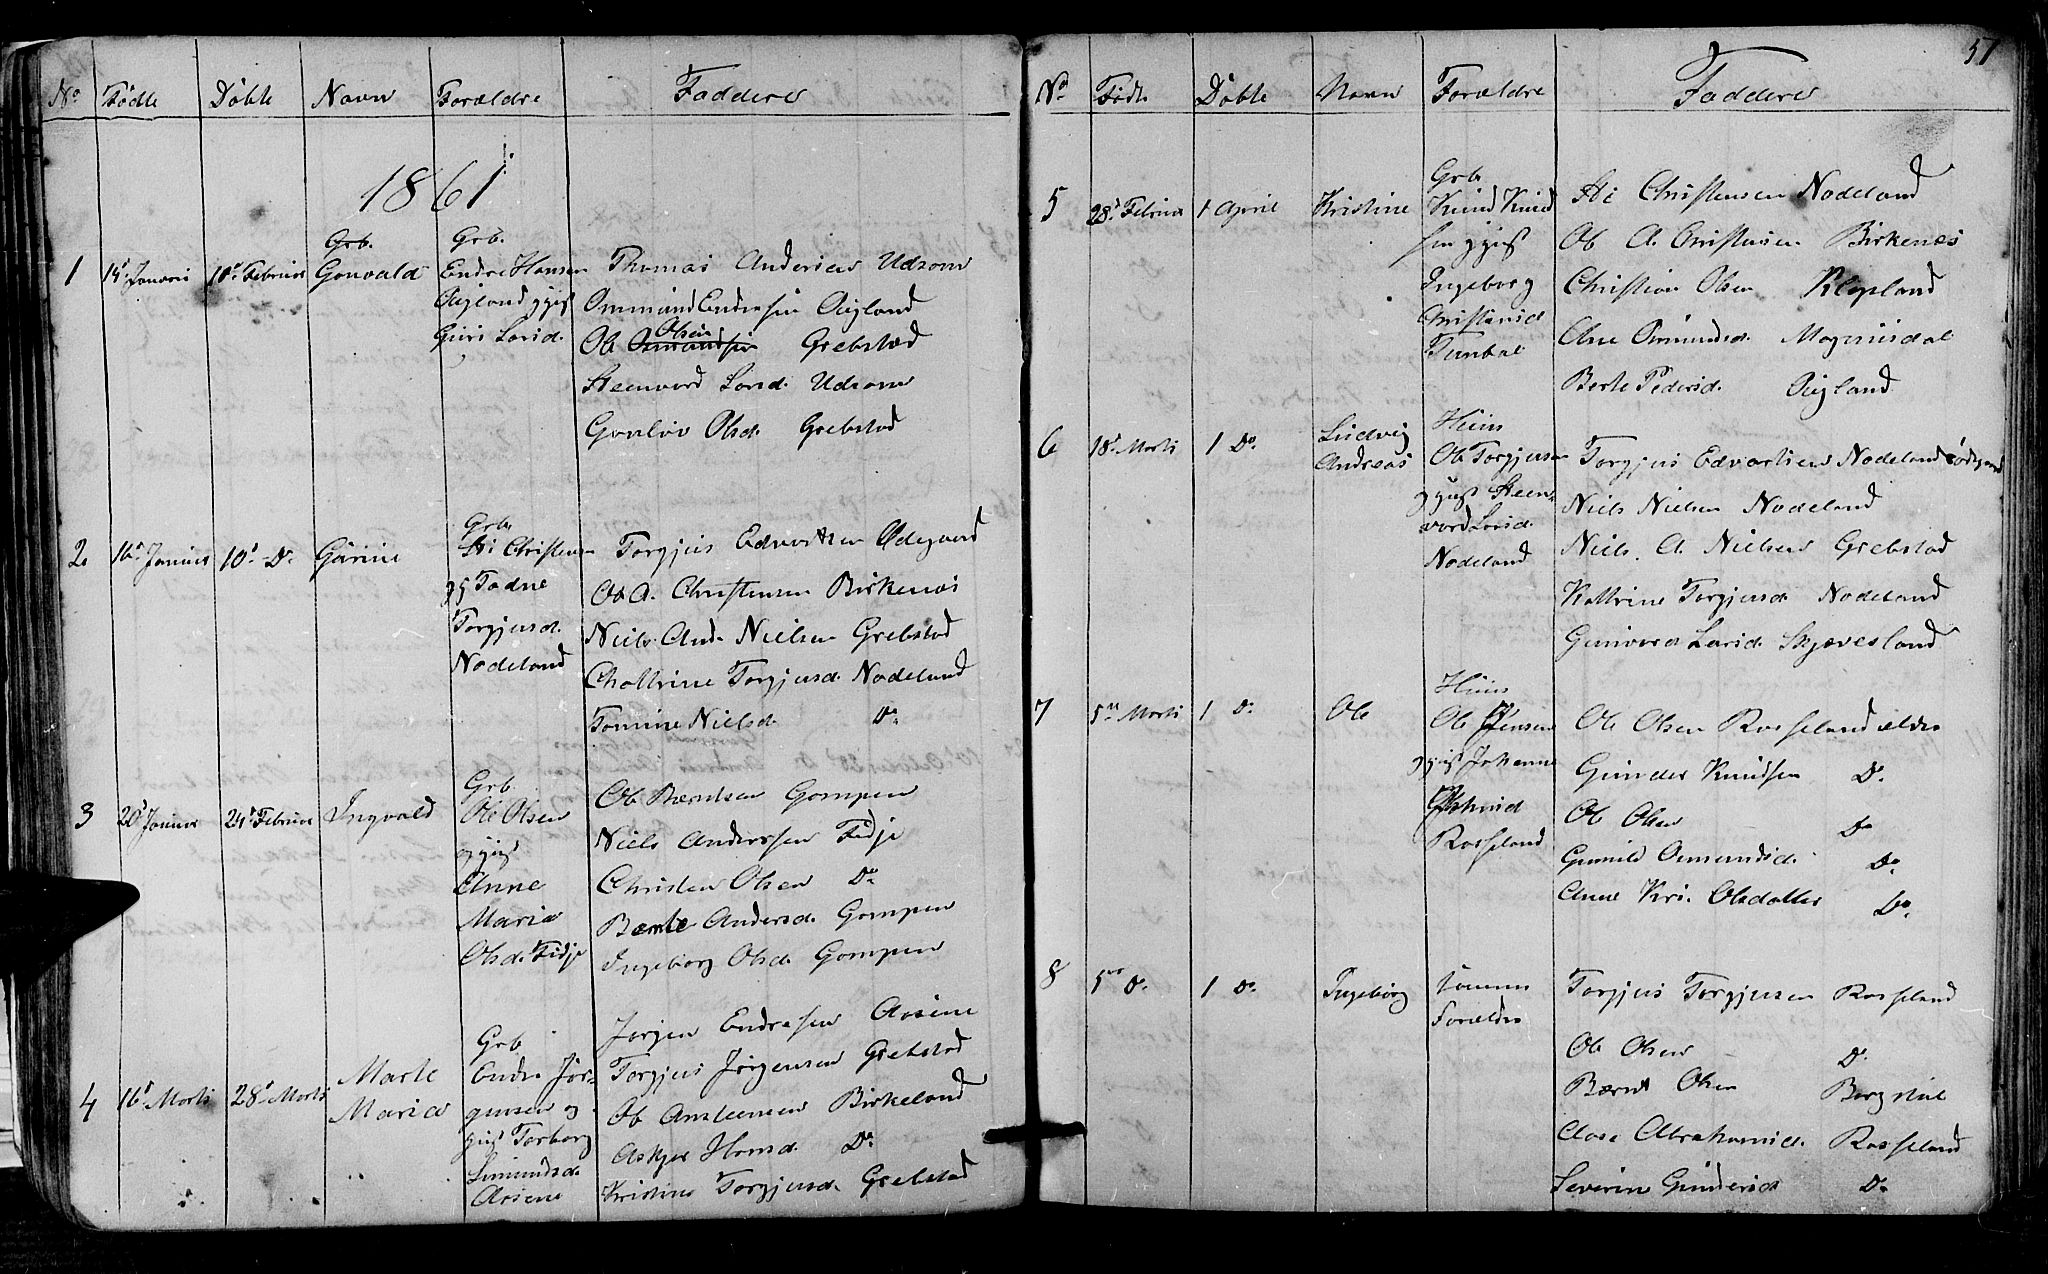 No Fødte Døbte Navn Forældre Faddere
1861
1 14de Januari 10de Februar Gunvald
Grb.
Endre Hansen
Aigland
Guri Larsd.
Thomas Andersen Udsom
Ommund Endresen Aigland
Ole Olsen Grebstad
Steenvord Larsd. Udsom
Gunlov Olsd. Grebstad
2 16de Januar 10de Do Gurine
Grb.
Sti Christensen
og Tadne
Torgjusd.
Nodeland
Torgjus Edvartsen Ødegaard
Ole A. Christensen Birkenæs
Niels And. Nielsen Grebstad
Chattrine Torgjusd. Nodeland
Tomine Nielsd. Do
3 20de Januar 24de Februar Ingvald
Grb
Ole Olsen
Anne
Maria
Olsd. Fidje
Ole Berntsen Gompen
Niels Anderssen Fidje
Christen Olsen Do
Berte Andersd. Gompen
Ingeborg Olsd. Gompen
4 16de Marts 28de Marts Marte
Maria
Grb
Endre Jør-
gensen og
Torborg
Simundsd.
Aasene
Jørgen Endresen Aasene
Torgjus Jørgensen Grebstad
Ole Ansteensen Birkeland
Askjer Hansd. Do
Kristine Torgjusd. Grebstad
57
No Fødte Døbte Navn Forældre Faddere
5 28de Februar 1 April Kristine
Grb.
Knud Knud
sen
Ingeborg
Christensd
Tunbal
Sti Christensen Nodeland
Ole A. Christensen Birkenæs
Christian Olsen Klepland
Ane Omundsd. Magnusdal
Berte Pedersd. Aigland
6 18de Marts 1 Do. Ludvig
Andreas
Huus
Ole Torgjusen
Steen-
vord Larsd.
Nodeland
Torgjus Edvartsen Nodeland
Niels Nielsen Nodeland
Niels. A. Nielsen Grebstad
Kattrine Torgjusd. Nodeland
Gunvord Larsd. Skjævesland
7 5te Marts 1 Do Ole
Huus
Ole Jensen
Johanne
Rosseland
Ole Olsen Rosseland ældre
Gunder Knudsen Do.
Ole Olsen Do
Gunild Omundsd. Do.
Anne Kri. Olsdatter Do.
8 5te Do. 1 Do. Ingeborg
samme
Forældre
Torgjus Torgjusen Rosseland
Ole Olsen Do.
Bærnt Olsen
Aase Abrahamsd. Rosseland
Severin Gundersd Do